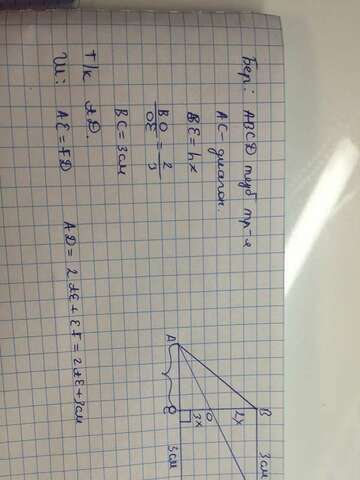 Бер: ABCD теңб тр-я
AC - диагон.
BE = hx
BO/OE = 2/3
BC = 3см
т/к AD.
Ш: AE = FD AD = 2AE + EF = 2AE + 3см
B 3см
2x
O
3x
A E 3см